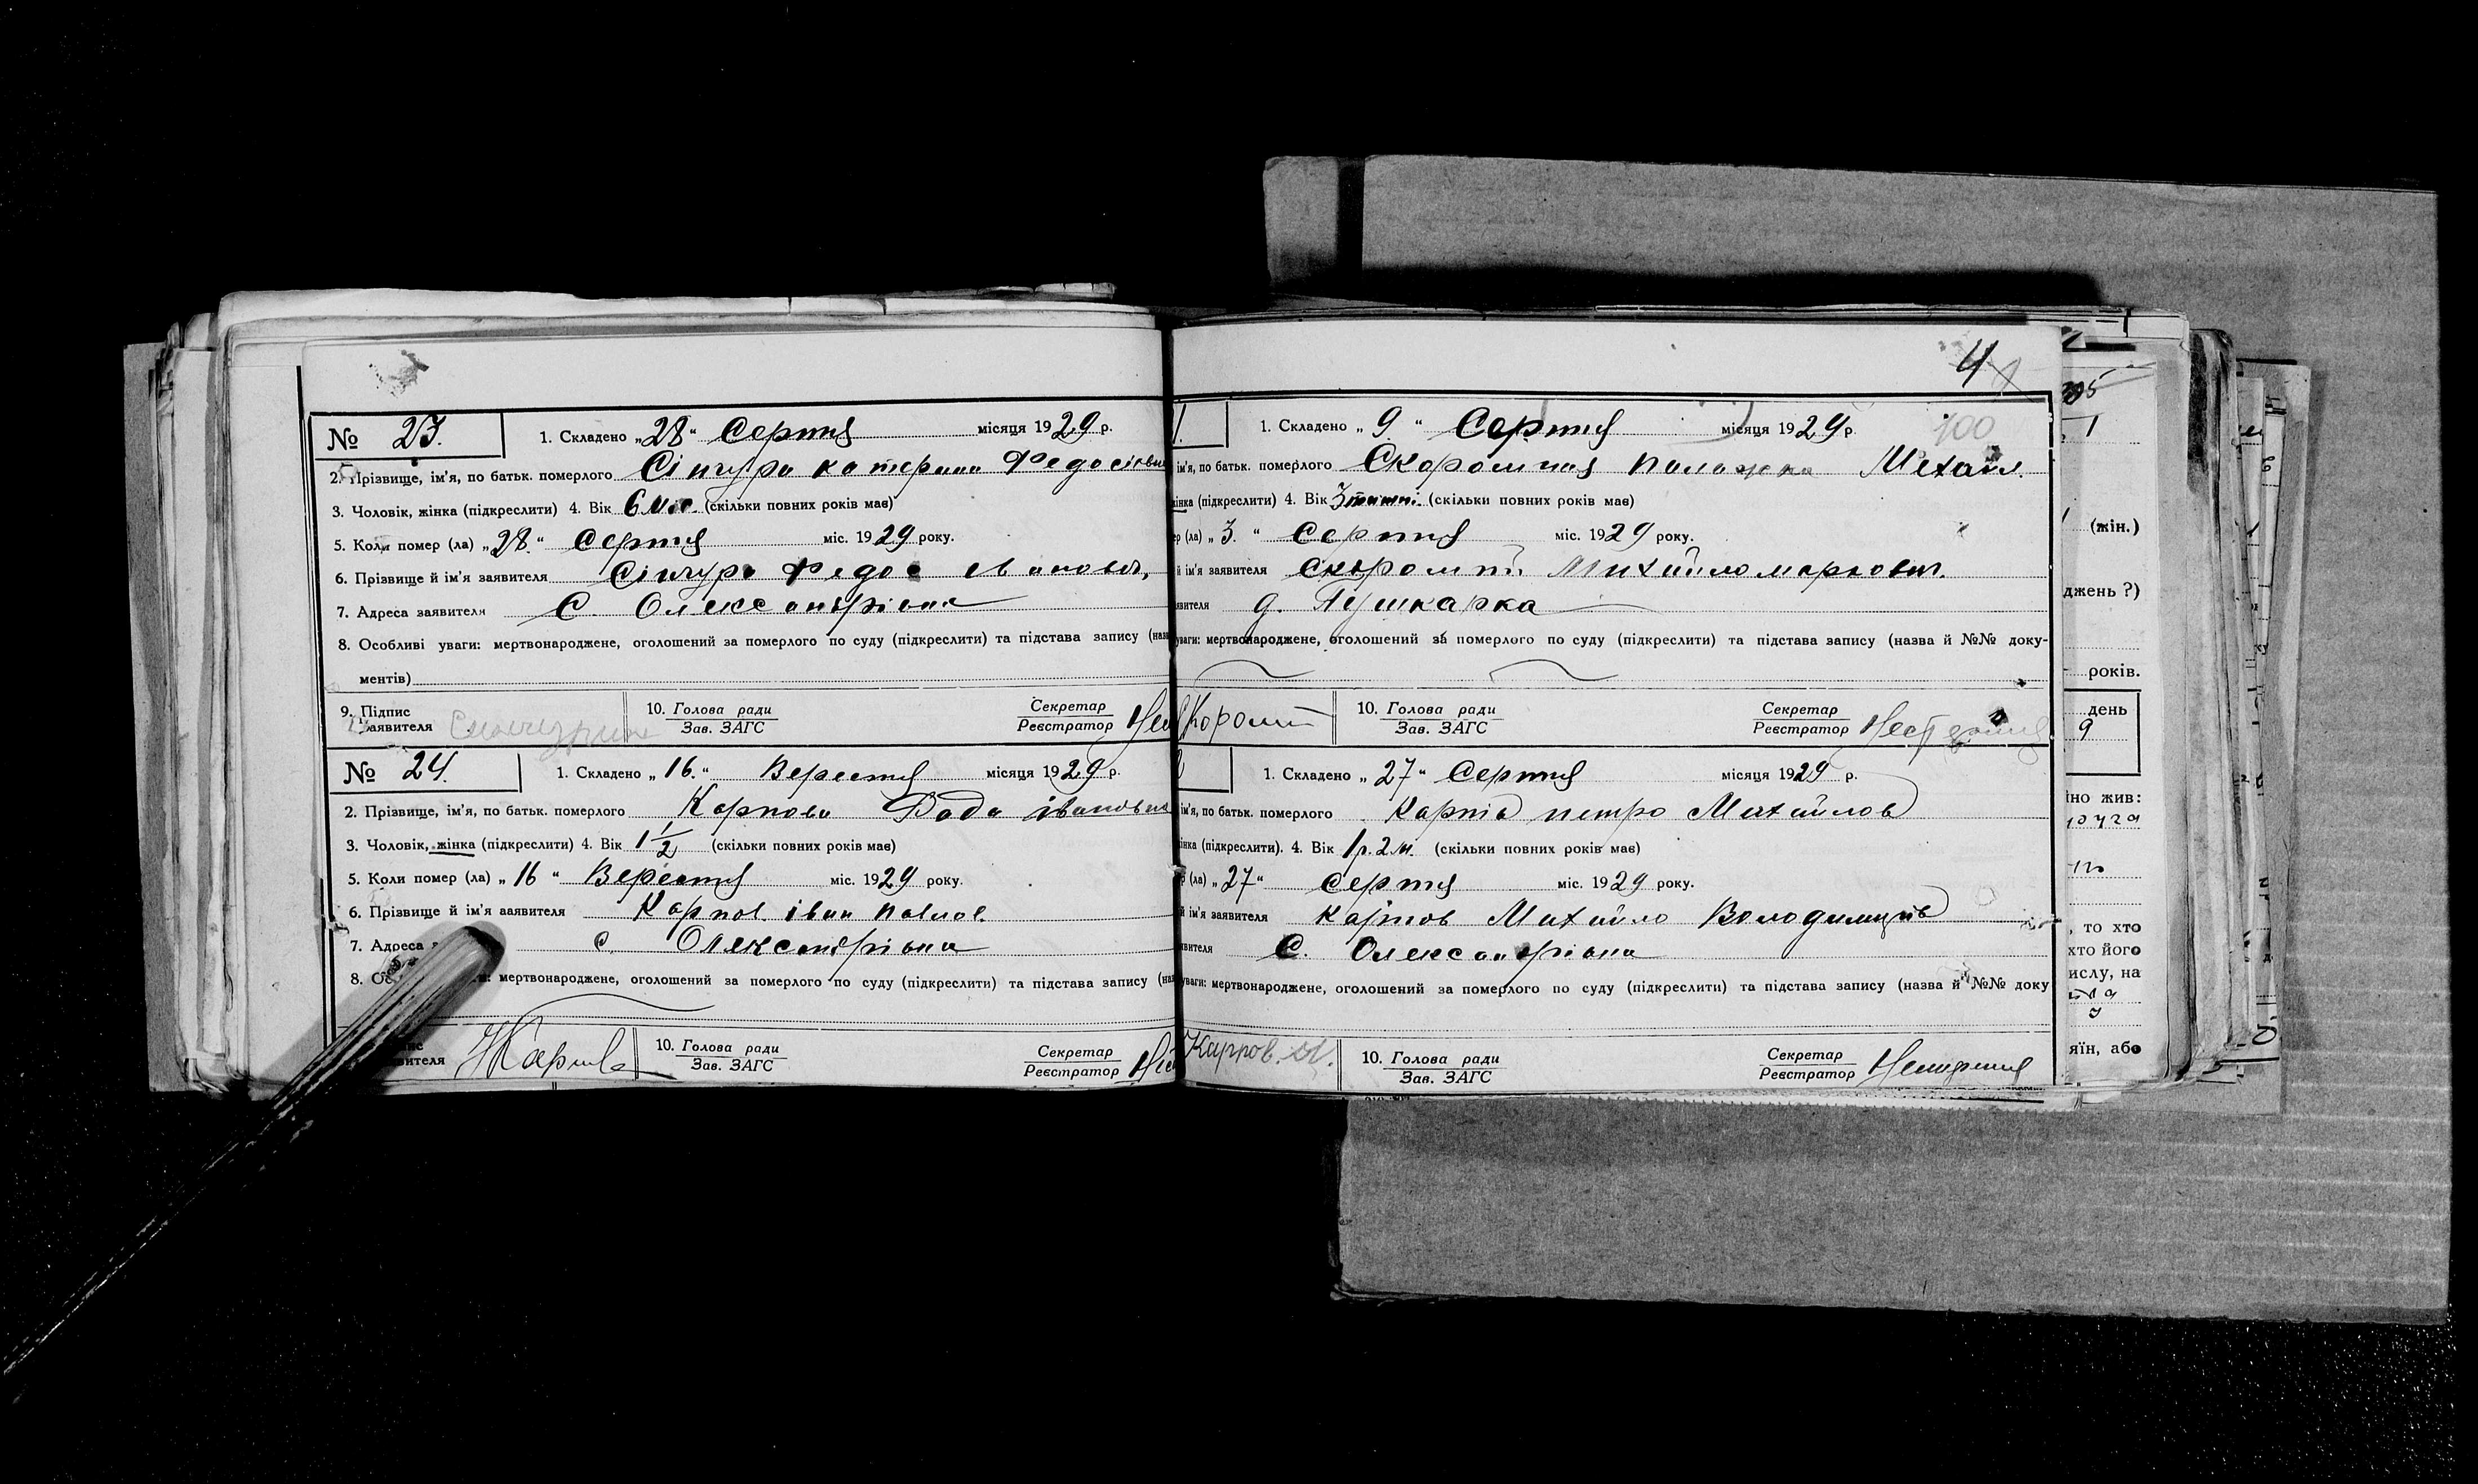 № 23. 1. Складено „28“ Серпня місяця 1929 р.
2. Прізвище, ім'я, по батьк. померлого Сінчура катерина Федосієвна
3. Чоловік, жінка (підкреслити) 4. Вік 6 міс. (скільки повних років має)
5. Коли помер (ла) „28.“ Серпня міс. 1929 року.
6. Прізвище й ім'я заявителя Сінчура Федос
7. Адреса заявителя С. Олександрівна
8. Особливі уваги: мертвонароджене, оголошений за померлого по суду (підкреслити) та підстава запису (наз
ментів)
9. Підпис заявителя 10. Голова ради Зав. ЗАГС Секретар Реєстратор
№ 24. 1. Складено „16.“ Вересня місяця 1929 р.
2. Прізвище, ім'я, по батьк. померлого Карпова івановна
3. Чоловік, жінка (підкреслити) 4. Вік 1 1/2 (скільки повних років має)
5. Коли помер (ла) „16“ Вересня міс. 1929 року.
6. Прізвище й ім'я заявителя Карпов. іван павлов.
7. Адреса с. Олександрівна
мертвонароджене, оголошений за померлого по суду (підкреслити) та підстава запису (наз
вителя 10. Голова ради Зав. ЗАГС Секретар Реєстратор
4
100
1. Складено „9“ Серпня місяця 1929 р.
ім'я, по батьк. померлого Скоромная Михайл.
інка (підкреслити) 4. Вік (скільки повних років має)
ер (ла) „3.“ Серпня міс. 1929 року.
й ім'я заявителя Михайло маркович.
явителя д. Пушкарка
уваги: мертвонароджене, оголошений за померлого по суду (підкреслити) та підстава запису (назва й №№ доку-
10. Голова ради Зав. ЗАГС Секретар Реєстратор
1. Складено „27“ Серпня місяця 1929 р.
ім'я, по батьк. померлого Карпів петро Михайлов
інка (підкреслити). 4. Вік 1 р. 2 м. (скільки повних років має)
р (ла) „27“ серпня міс. 1929 року.
й ім'я заявителя карпов Михайло Володимирів
явителя С. Олександрівна
уваги: мертвонароджене, оголошений за померлого по суду (підкреслити) та підстава запису (назва й №№ доку
10. Голова ради Зав. ЗАГС Секретар Реєстратор
(жін.)
джень ?)
років.
день
9
но жив:
, то хто
хто його
ислу, на
яїн, або